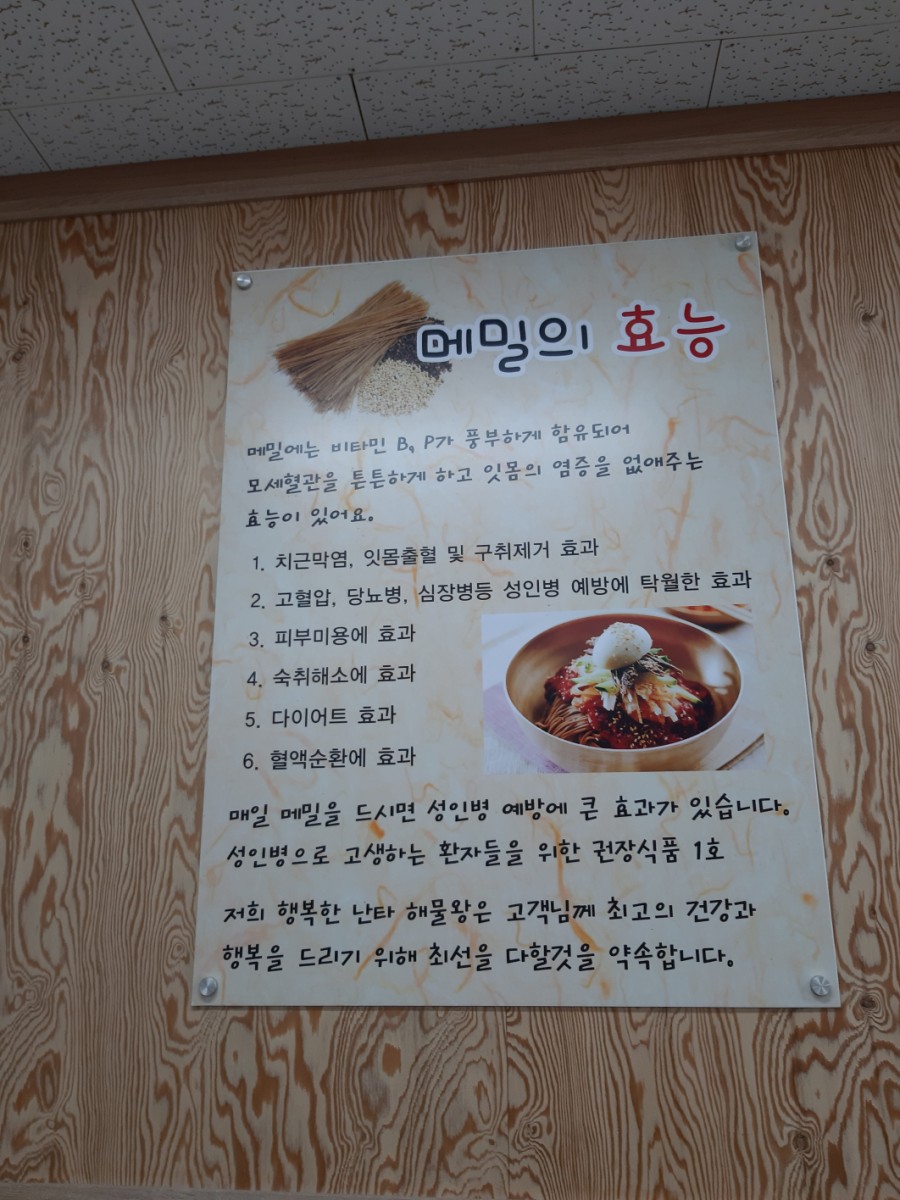 메밀의 효능
메밀에는 비타민 B, P가 풍부하게 함유되어
모세혈관을 튼튼하게 하고 잇몸의 염증을 없애주는
효능이 있어요.
1. 치근막염, 잇몸출혈 및 구취제거 효과
2. 고혈압, 당뇨병, 심장병등 성인병 예방에 탁월한 효과
3. 피부미용에 효과
4. 숙취해소에 효과
5. 다이어트 효과
6. 혈액순환에 효과
매일 메밀을 드시면 성인병 예방에 큰 효과가 있습니다.
성인병으로 고생하는 환자들을 위한 권장식품 1호
저희 행복한 난타 해물왕은 고객님께 최고의 건강과
행복을 드리기 위해 최선을 다할것을 약속합니다.